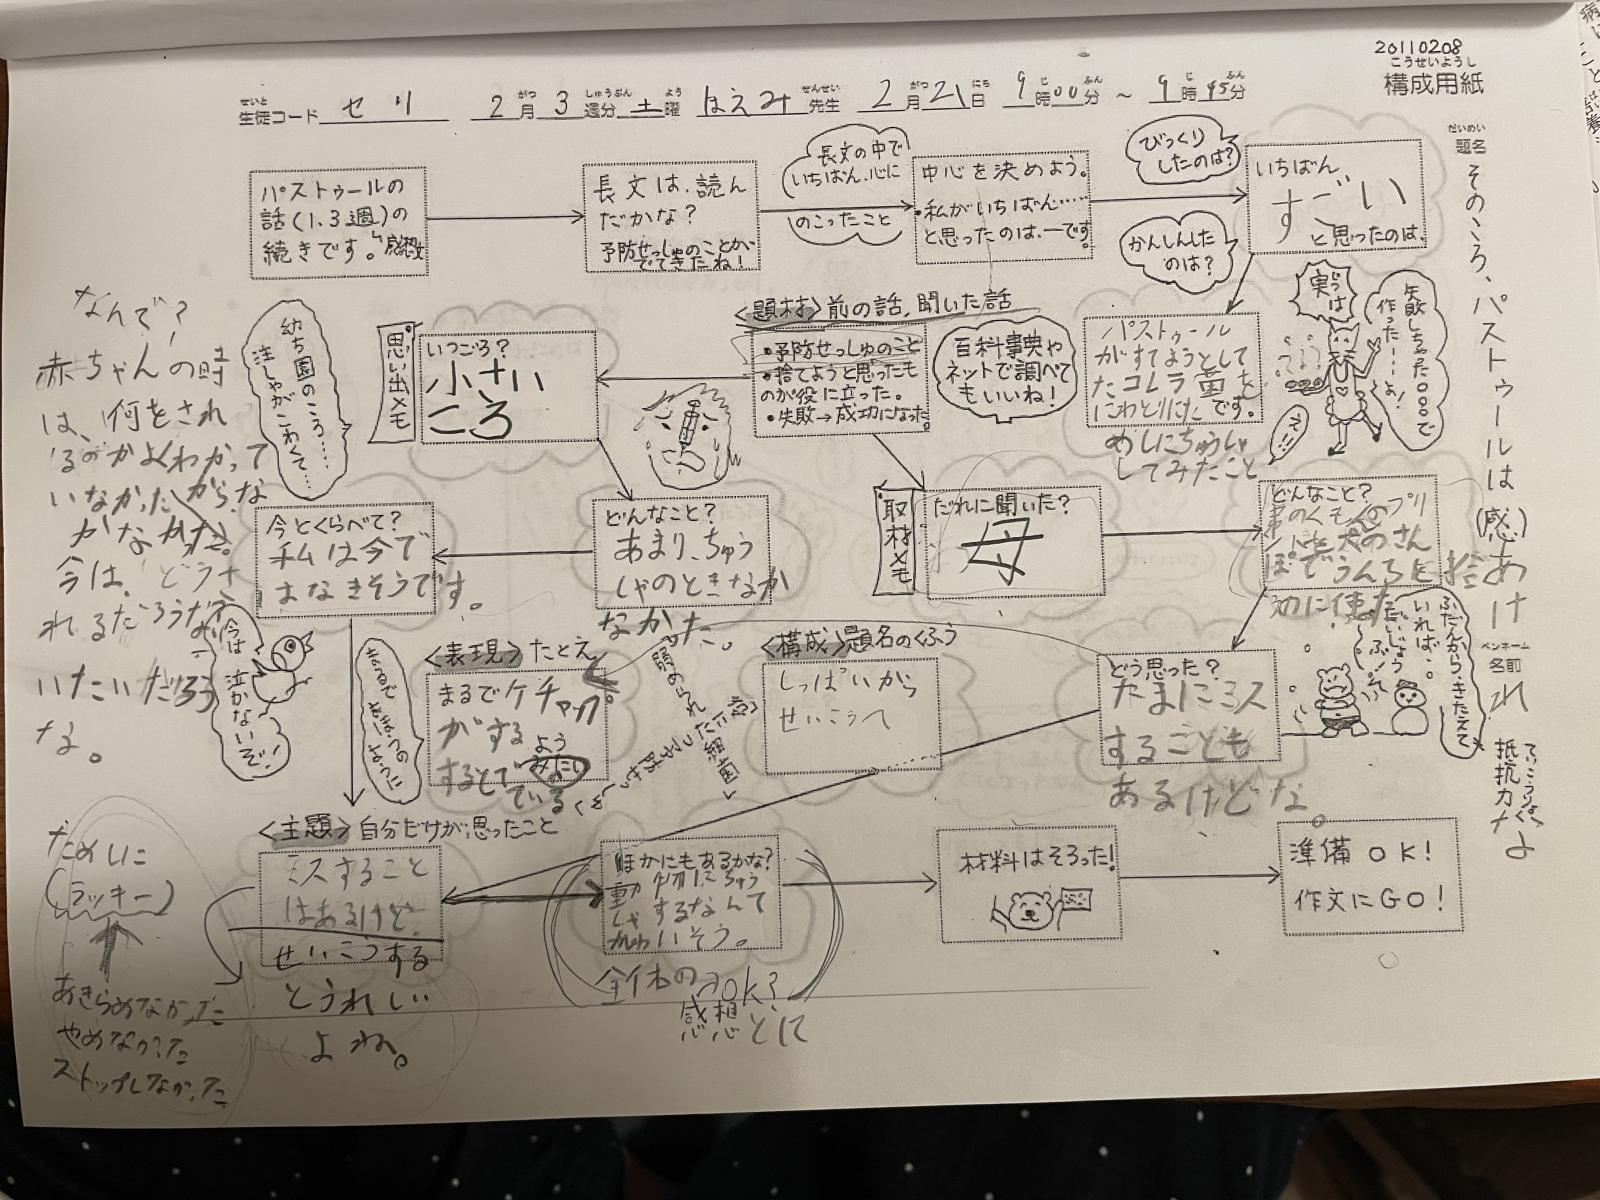 20110208
こうせいようし
構成用紙
せいと
生徒コード セリ
2月3週分土曜
ほえみ先生
2月21日 9時00分 〜 9時45分
だいめい
題名
そのころ、パストゥールは(感)
ペンネーム
名前
あけれ
パストゥールの
話(1.3週)の
続きです。
感想文
長文は、読ん
だかな?
予防せっしゅのことが
でてきたね!
長文の中で
いちばん、心に
のこったこと
中心を決めよう。
・私がいちばん……
と思ったのは、ーです。
びっくり
したのは?
かんしんした
のは?
いちばん
すごい
と思ったのは、
パストゥール
がすてようとして
たコレラ菌を
にわとりに です。
めしにちゅうしゃ
してみたこと
実は
失敗しちゃった〇〇〇で
作った……よ!
えー!!
<題材>前の話、聞いた話
・予防せっしゅのこと
・捨てようと思ったも
のが役に立った。
・失敗→成功になった。
百科事典や
ネットで調べて
もいいね!
思い出メモ
いつごろ?
小さい
ころ
幼ち園のころ……
注しゃがこわくて…
どんなこと?
あまり、ちゅう
しゃのときなか
なかった。
今とくらべて?
私は今で
はなきそうです。
今は
泣かないぞ!
なんで?
赤ちゃんの時
は、何をされ
るのかよくわかって
いなかったからな
かなかった。
今は、どうさ
れるだろうな?
いたいだろう
な。
取材メモ
だれに聞いた?
母
どんなこと?
弟のくもんのプリ
ントを犬のさん
ぽでうんちを
拾
うのに使った
どう思った?
たまにミス
することも
あるけどな。
ふだんから、きたえて
いれば…
だいじょう
ぶ!
ていこうりょく
抵抗力だよ
<表現>たとえ
まるでケチャップ
がする
よう
みたい
まるで
おばけの
ように
<構成>題名のくふう
しっぱいから
せいこうへ
<主題>自分だけが思ったこと
ミスすること
はあるけど
せいこうする
とうれしい
よね。
ためしに
(ラッキー)
あきらめなかった
やめなかった
ストップしなかった
ほかにもあるかな?
動物にちゅう
しゃするなんて
かわいそう。
全体の
感想
OK?
とに
材料はそろった!
準備OK!
作文にGO!